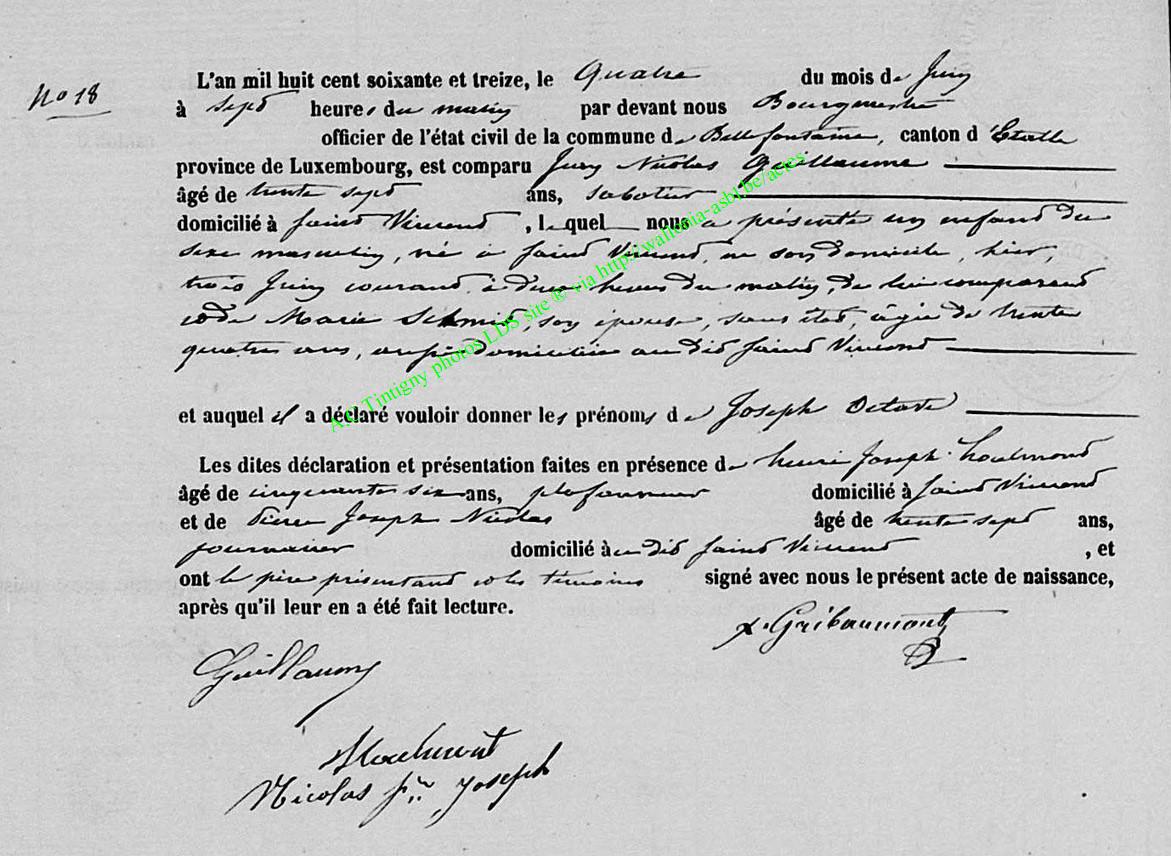 No 18
L'an mil huit cent soixante et treize, le Quatre du mois de Juin
à sept heures du matin par devant nous Bourgmestre
officier de l'état civil de la commune de Bellefontaine, canton d'Etalle
province de Luxembourg, est comparu Nicolas Guillaume
âgé de trente sept ans, sabotier
domicilié à Saint Vincent, lequel nous a présenté un enfant du
sexe masculin, né à Saint Vincent, en son domicile, hier,
trois Juin courant, à deux heures du matin, de lui comparant
et de Marie Schmit, son épouse, sans état, âgée de trente
quatre ans, aussi domiciliée au dit Saint Vincent
et auquel il a déclaré vouloir donner les prénoms de Joseph Octave
Les dites déclaration et présentation faites en présence de henri Joseph
âgé de cinquante six ans, plafonneur domicilié à Saint Vincent
et de Pierre Joseph Nicolas âgé de trente sept ans,
journalier domicilié au dit Saint Vincent, et
ont le père présentant et les témoins signé avec nous le présent acte de naissance,
après qu'il leur en a été fait lecture.
Gribaumont
Guillaume
Nicolas Joseph
AE Tintigny photos LDS site ® via http://wallonia-asbl.be/actes